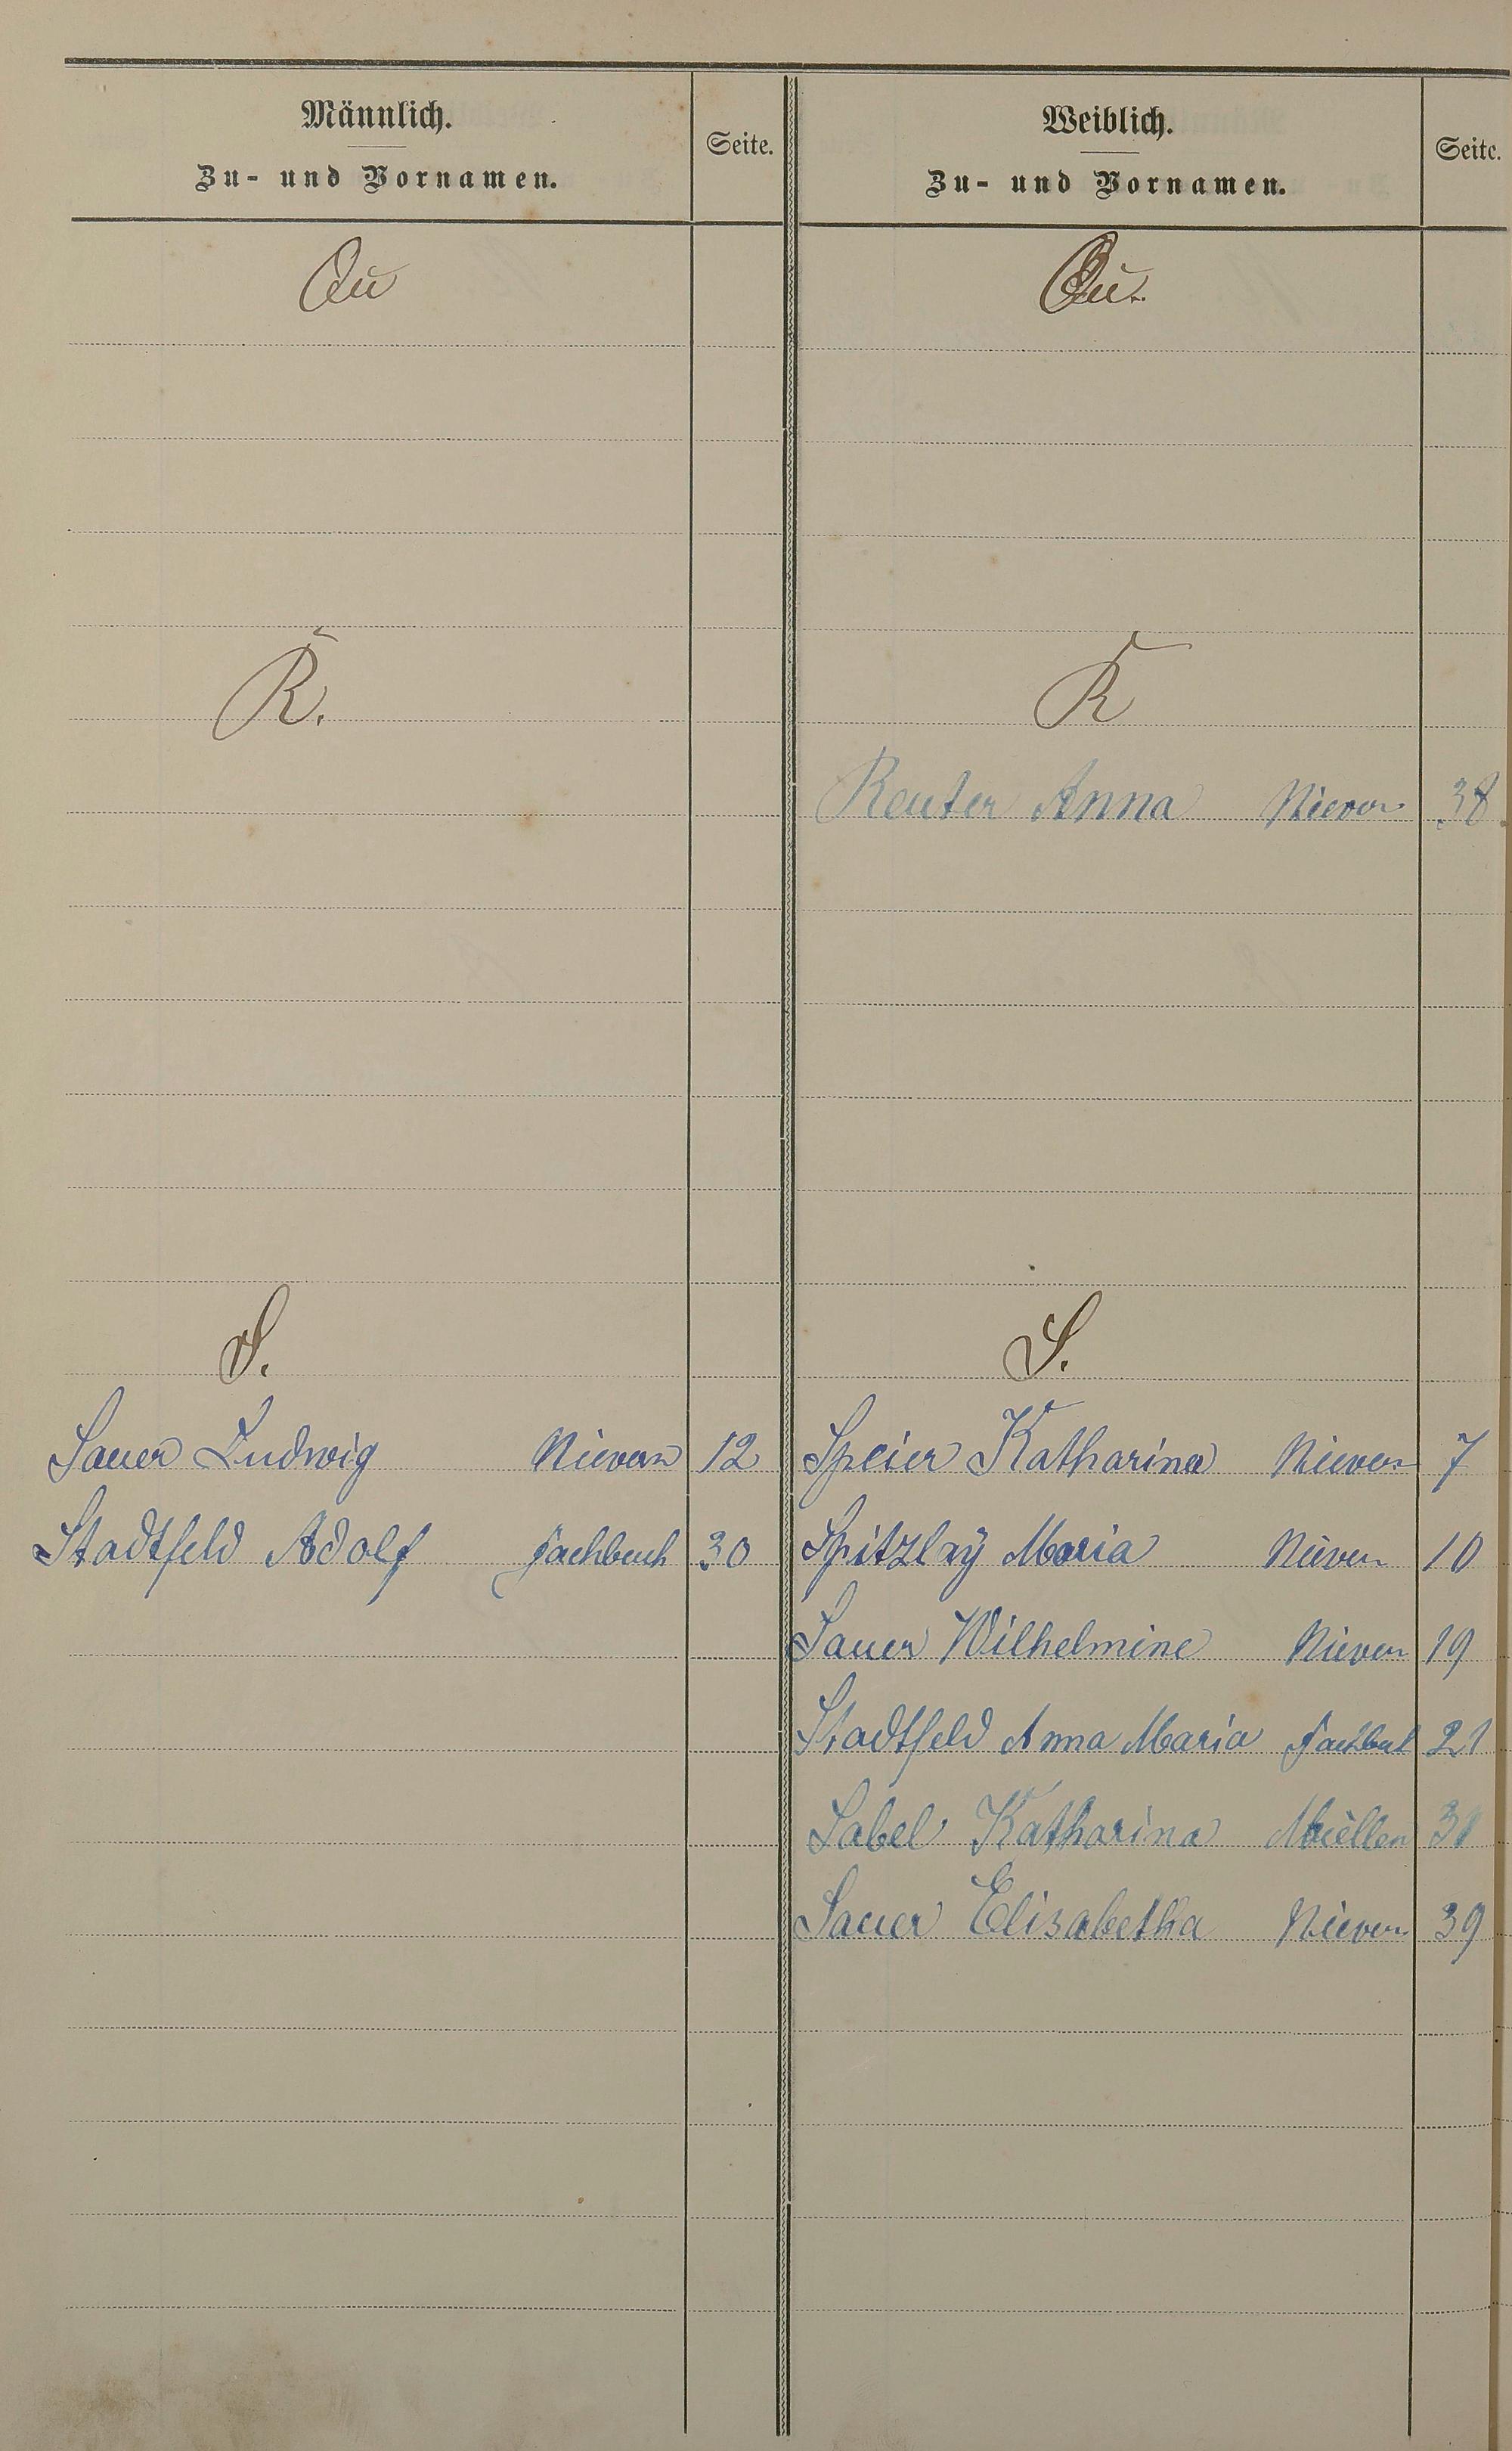 Männlich.
Zu- und Vornamen.
Seite.
Qu
R.
S.
Sauer Ludwig Nievern 12
Stadtfeld Adolf Fachbach 30
Weiblich.
Zu- und Vornamen.
Seite.
Qu.
R
Reuter Anna Nievern 38.
S.
Speier Katharina Nievern 7
Spitzley Maria Nievern 10
Sauer Wilhelmine Nievern 19
Stadtfeld Anna Maria Fachbach 21
Sabel Katharina Miellen
Sauer Elisabetha Nievern 39